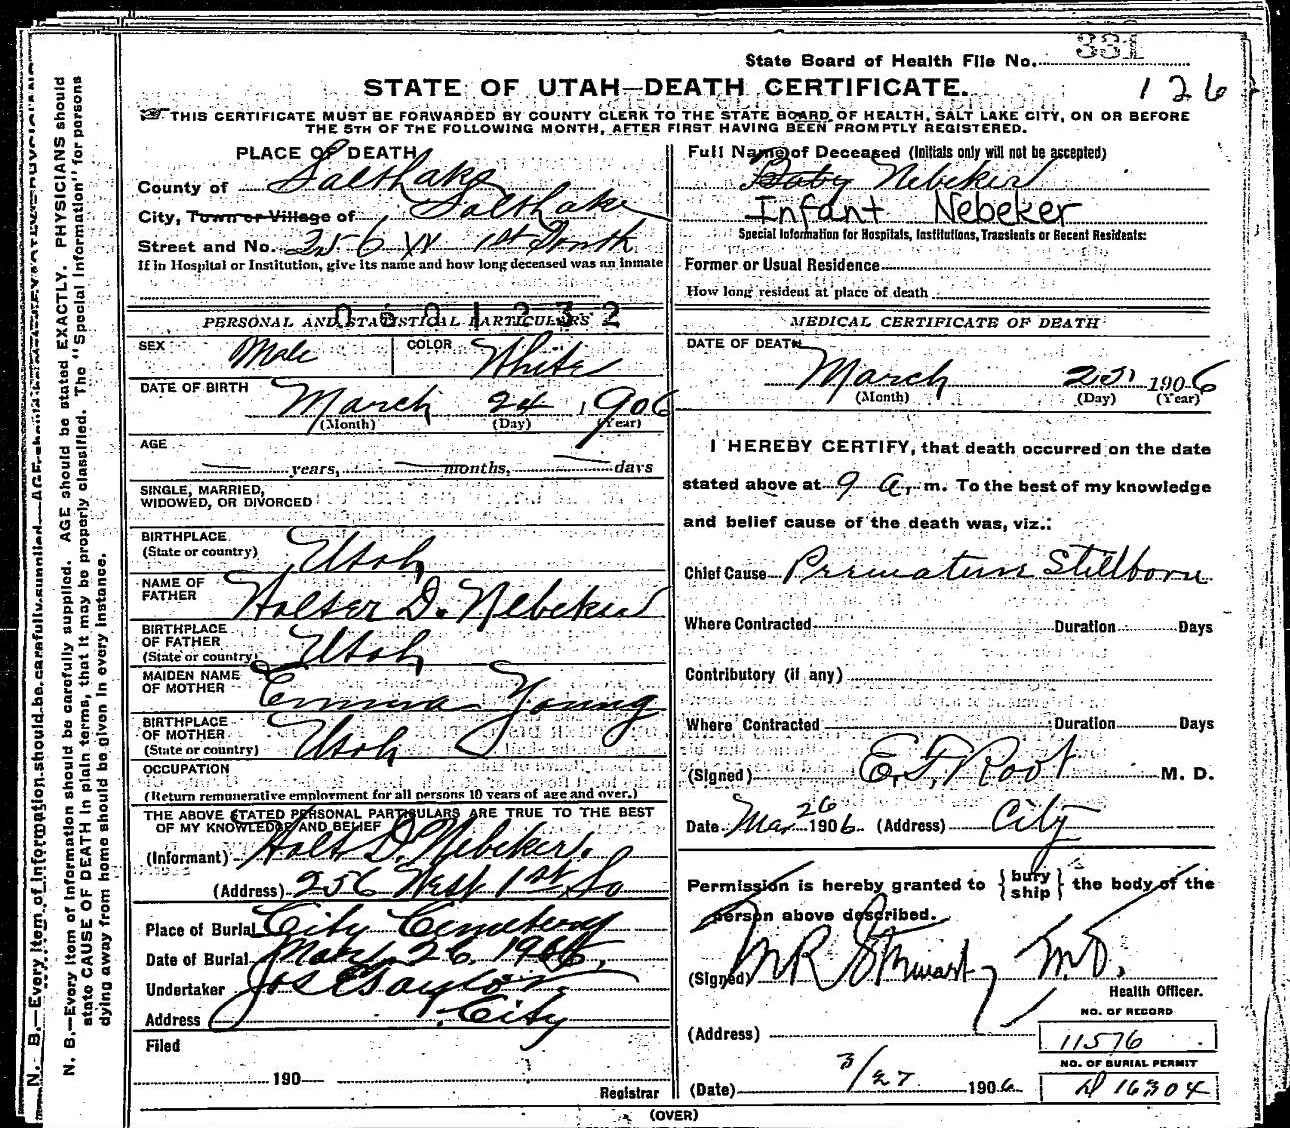 State Board of Health File No. 331
STATE OF UTAH—DEATH CERTIFICATE.
126
THIS CERTIFICATE MUST BE FORWARDED BY COUNTY CLERK TO THE STATE BOARD OF HEALTH, SALT LAKE CITY, ON OR BEFORE
THE 5TH OF THE FOLLOWING MONTH, AFTER FIRST HAVING BEEN PROMPTLY REGISTERED.
N. B.—Every item of Information should be carefully supplied. AGE should be stated EXACTLY. PHYSICIANS should
state CAUSE OF DEATH in plain terms, that it may be properly classified. The "Special Information" for persons
dying away from home should be given in every instance.
N. B.—Every item of Information should be carefully supplied.
PLACE OF DEATH
County of Salt Lake
City, Town or Village of Salt Lake
Street and No. 256 W 1st South
If in Hospital or Institution, give its name and how long deceased was an inmate
0601232
PERSONAL AND STATISTICAL PARTICULARS
SEX Male COLOR White
DATE OF BIRTH
March 24 1906
(Month) (Day) (Year)
AGE
— years, — months, — days
SINGLE, MARRIED,
WIDOWED, OR DIVORCED
BIRTHPLACE
(State or country) Utah
NAME OF
FATHER D. Nebeker
BIRTHPLACE
OF FATHER
(State or country) Utah
MAIDEN NAME
OF MOTHER Emma Young
BIRTHPLACE
OF MOTHER
(State or country) Utah
OCCUPATION
(Return remunerative employment for all persons 10 years of age and over.)
THE ABOVE STATED PERSONAL PARTICULARS ARE TRUE TO THE BEST
OF MY KNOWLEDGE AND BELIEF
(Informant) D. Nebeker.
(Address) 256 West 1st So
Place of Burial City Cemetery
Date of Burial Mar. 26, 1906,
Undertaker Jos E Taylor
Address City
Filed
190—
Registrar
Full Name of Deceased (Initials only will not be accepted)
Baby Nebeker
Infant Nebeker
Special Information for Hospitals, Institutions, Transients or Recent Residents:
Former or Usual Residence
How long resident at place of death
MEDICAL CERTIFICATE OF DEATH
DATE OF DEATH
March 25, 1906
(Month) (Day) (Year)
I HEREBY CERTIFY, that death occurred on the date
stated above at 9 a. m. To the best of my knowledge
and belief cause of the death was, viz.:
Chief Cause Premature Stillborn
Where Contracted Duration Days
Contributory (if any)
Where Contracted Duration Days
(Signed) E. F. Root M. D.
Date Mar 26 1906 (Address) City
Permission is hereby granted to {bury ship} the body of the
person above described.
(Signed) M R Stewart, M.D.
Health Officer.
(Address)
NO. OF RECORD
11576
NO. OF BURIAL PERMIT
D 16304
(Date) 3/27 1906
(OVER)